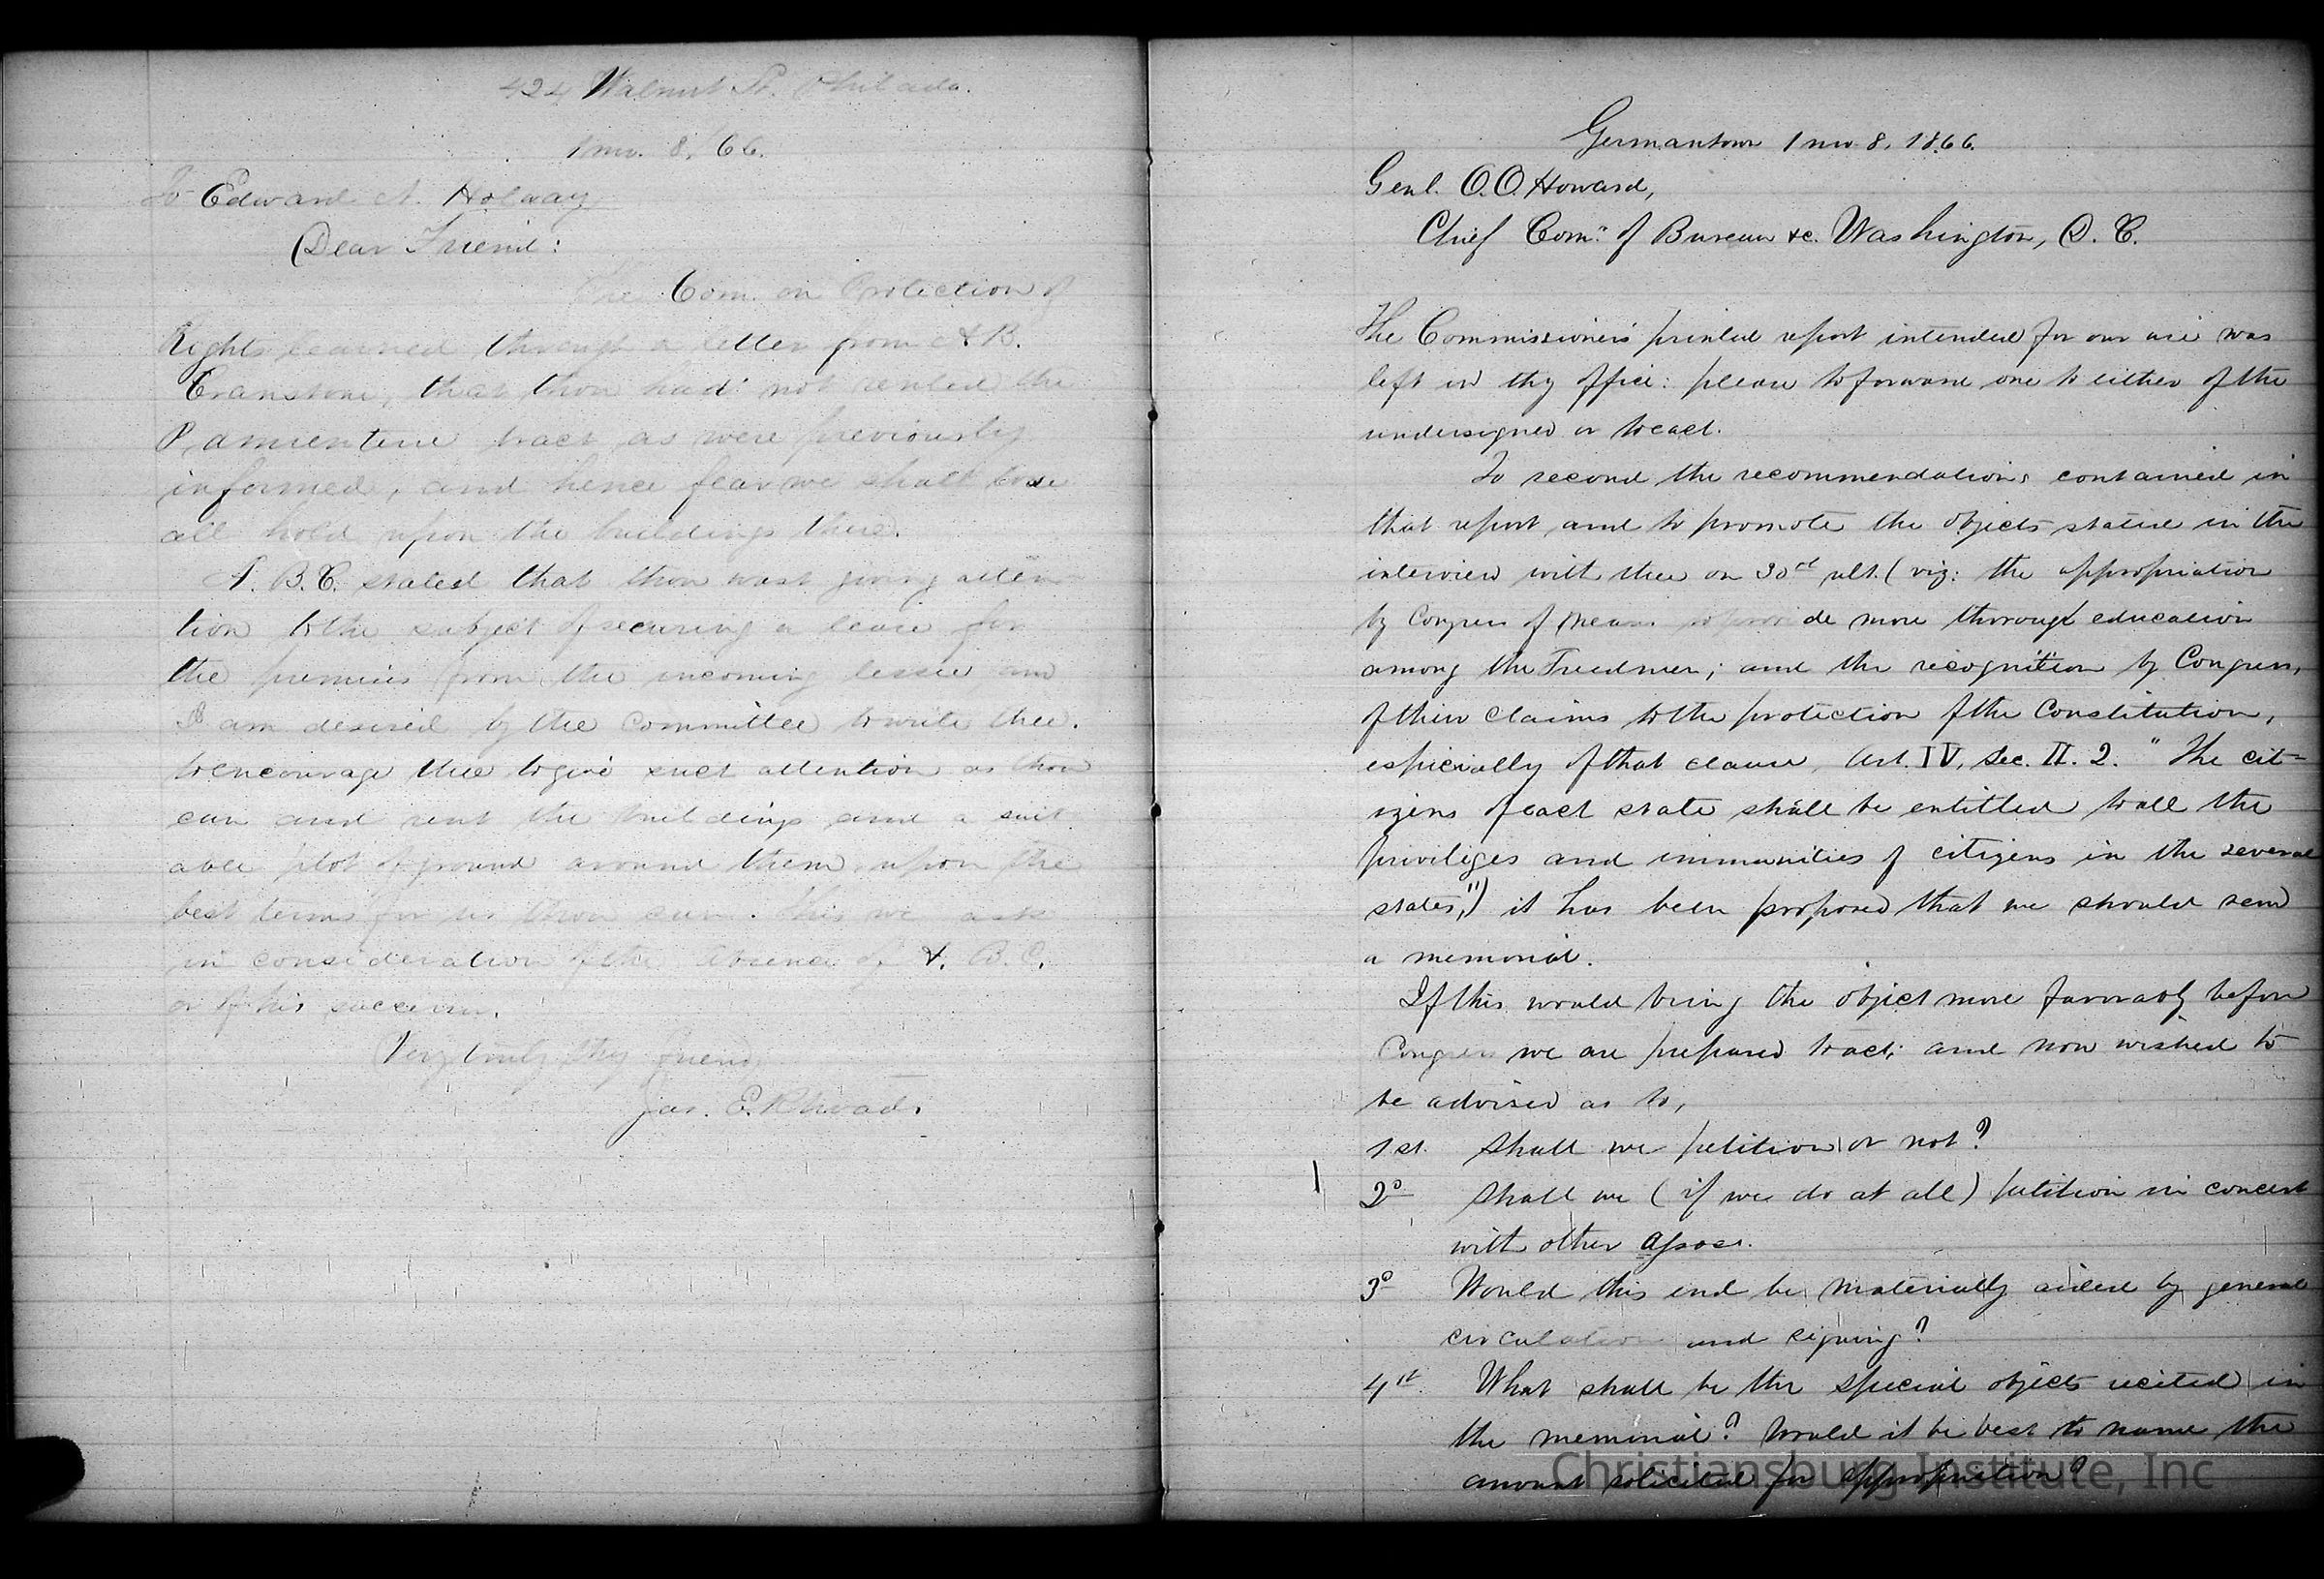 424 Walnut St. Philada.
1 mo. 8. 66.
To Edward A. Holway
Dear Friend:
The Com. on Protection of
Rights learned through a letter from A B.
Cranstone, that thou had not rented the
tract as were previously
informed, and hence fear we shall lose
all hold upon the buildings there.
A. B. C. stated that thou wast giving atten
tion to the subject of securing a lease for
the premises from the incoming lessee, and
I am desired by the Committee to write thee.
to encourage thee to give such attention as thou
can and rent the buildings and a suit
able plot of ground around them, upon the
best terms for us thou can. This we ask
in consideration of the absence of A. B. C.
or of his successor.
Very truly thy friend,
Jas. E. Rhoads.
Germantown 1 mo 8, 1866.
Genl. O. O. Howard,
Chief Comr. of Bureau &c. Washington, D. C.
The Commissioners printed report intended for our use was
left in thy office: please to forward one to either of the
undersigned or to each.
To second the recommendations contained in
that report, and to promote the objects stated in the
interview with thee on 30th ult. (viz: the appropriation
by Congress of means to provide more thorough education
among the Freedmen; and the recognition by Congress,
of their claims to the protection of the Constitution,
especially of that clause, Art. IV, Sec. II. 2. "The cit-
izens of each state shall be entitled to all the
privileges and immunities of citizens in the several
states,") it has been proposed that we should send
a memorial.
If this would bring the object more favorably before
Congress we are prepared to act; and now wished to
be advised as to,
1st. Shall we petition or not?
2d Shall we (if we do at all) petition in concert
with other Assocs.
3d Would this end be materially aided by general
circulation and signing?
4th. What shall be the special objects recited in
the memorial? Would it be best to name the
amount solicited for appropriation?
Christiansburg Institute, Inc